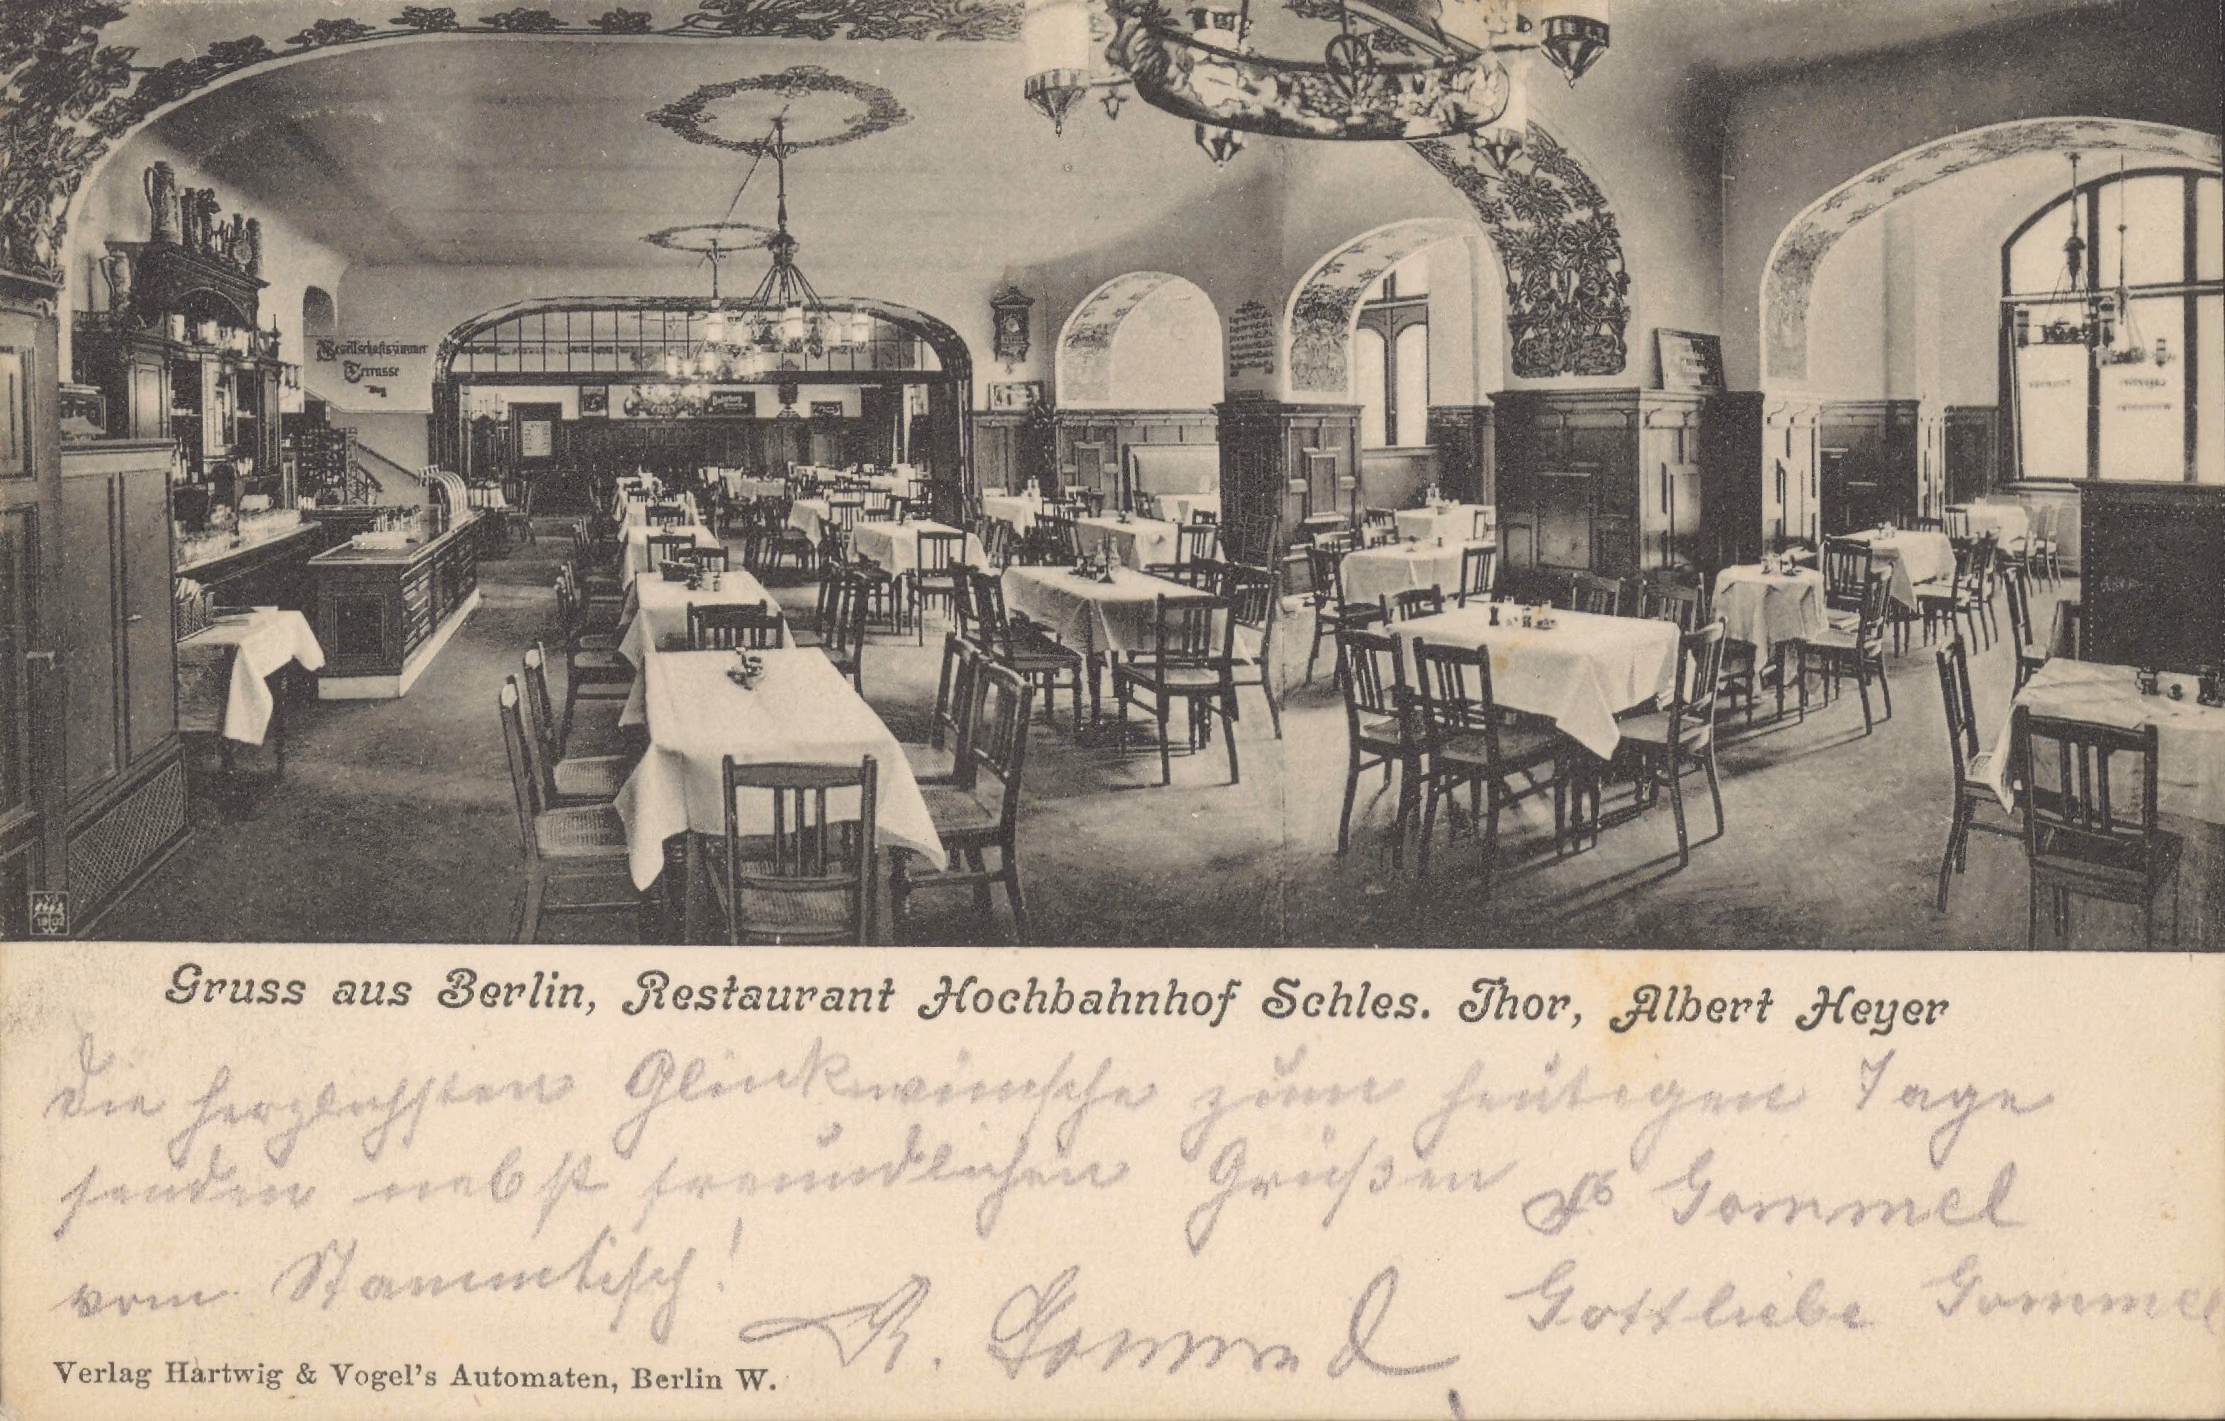 Gesellschaftszimmer
Terrasse
1902
Gruss aus Berlin, Restaurant Hochbahnhof Schles. Thor, Albert Heyer
Die herzlichsten Glückwünsche zum heutigen Tage
senden nebst freundlichen Grüßen
Gommel
vom Stammtisch!
Gottliebe Gommel
R. Gommel
Verlag Hartwig & Vogel's Automaten, Berlin W.